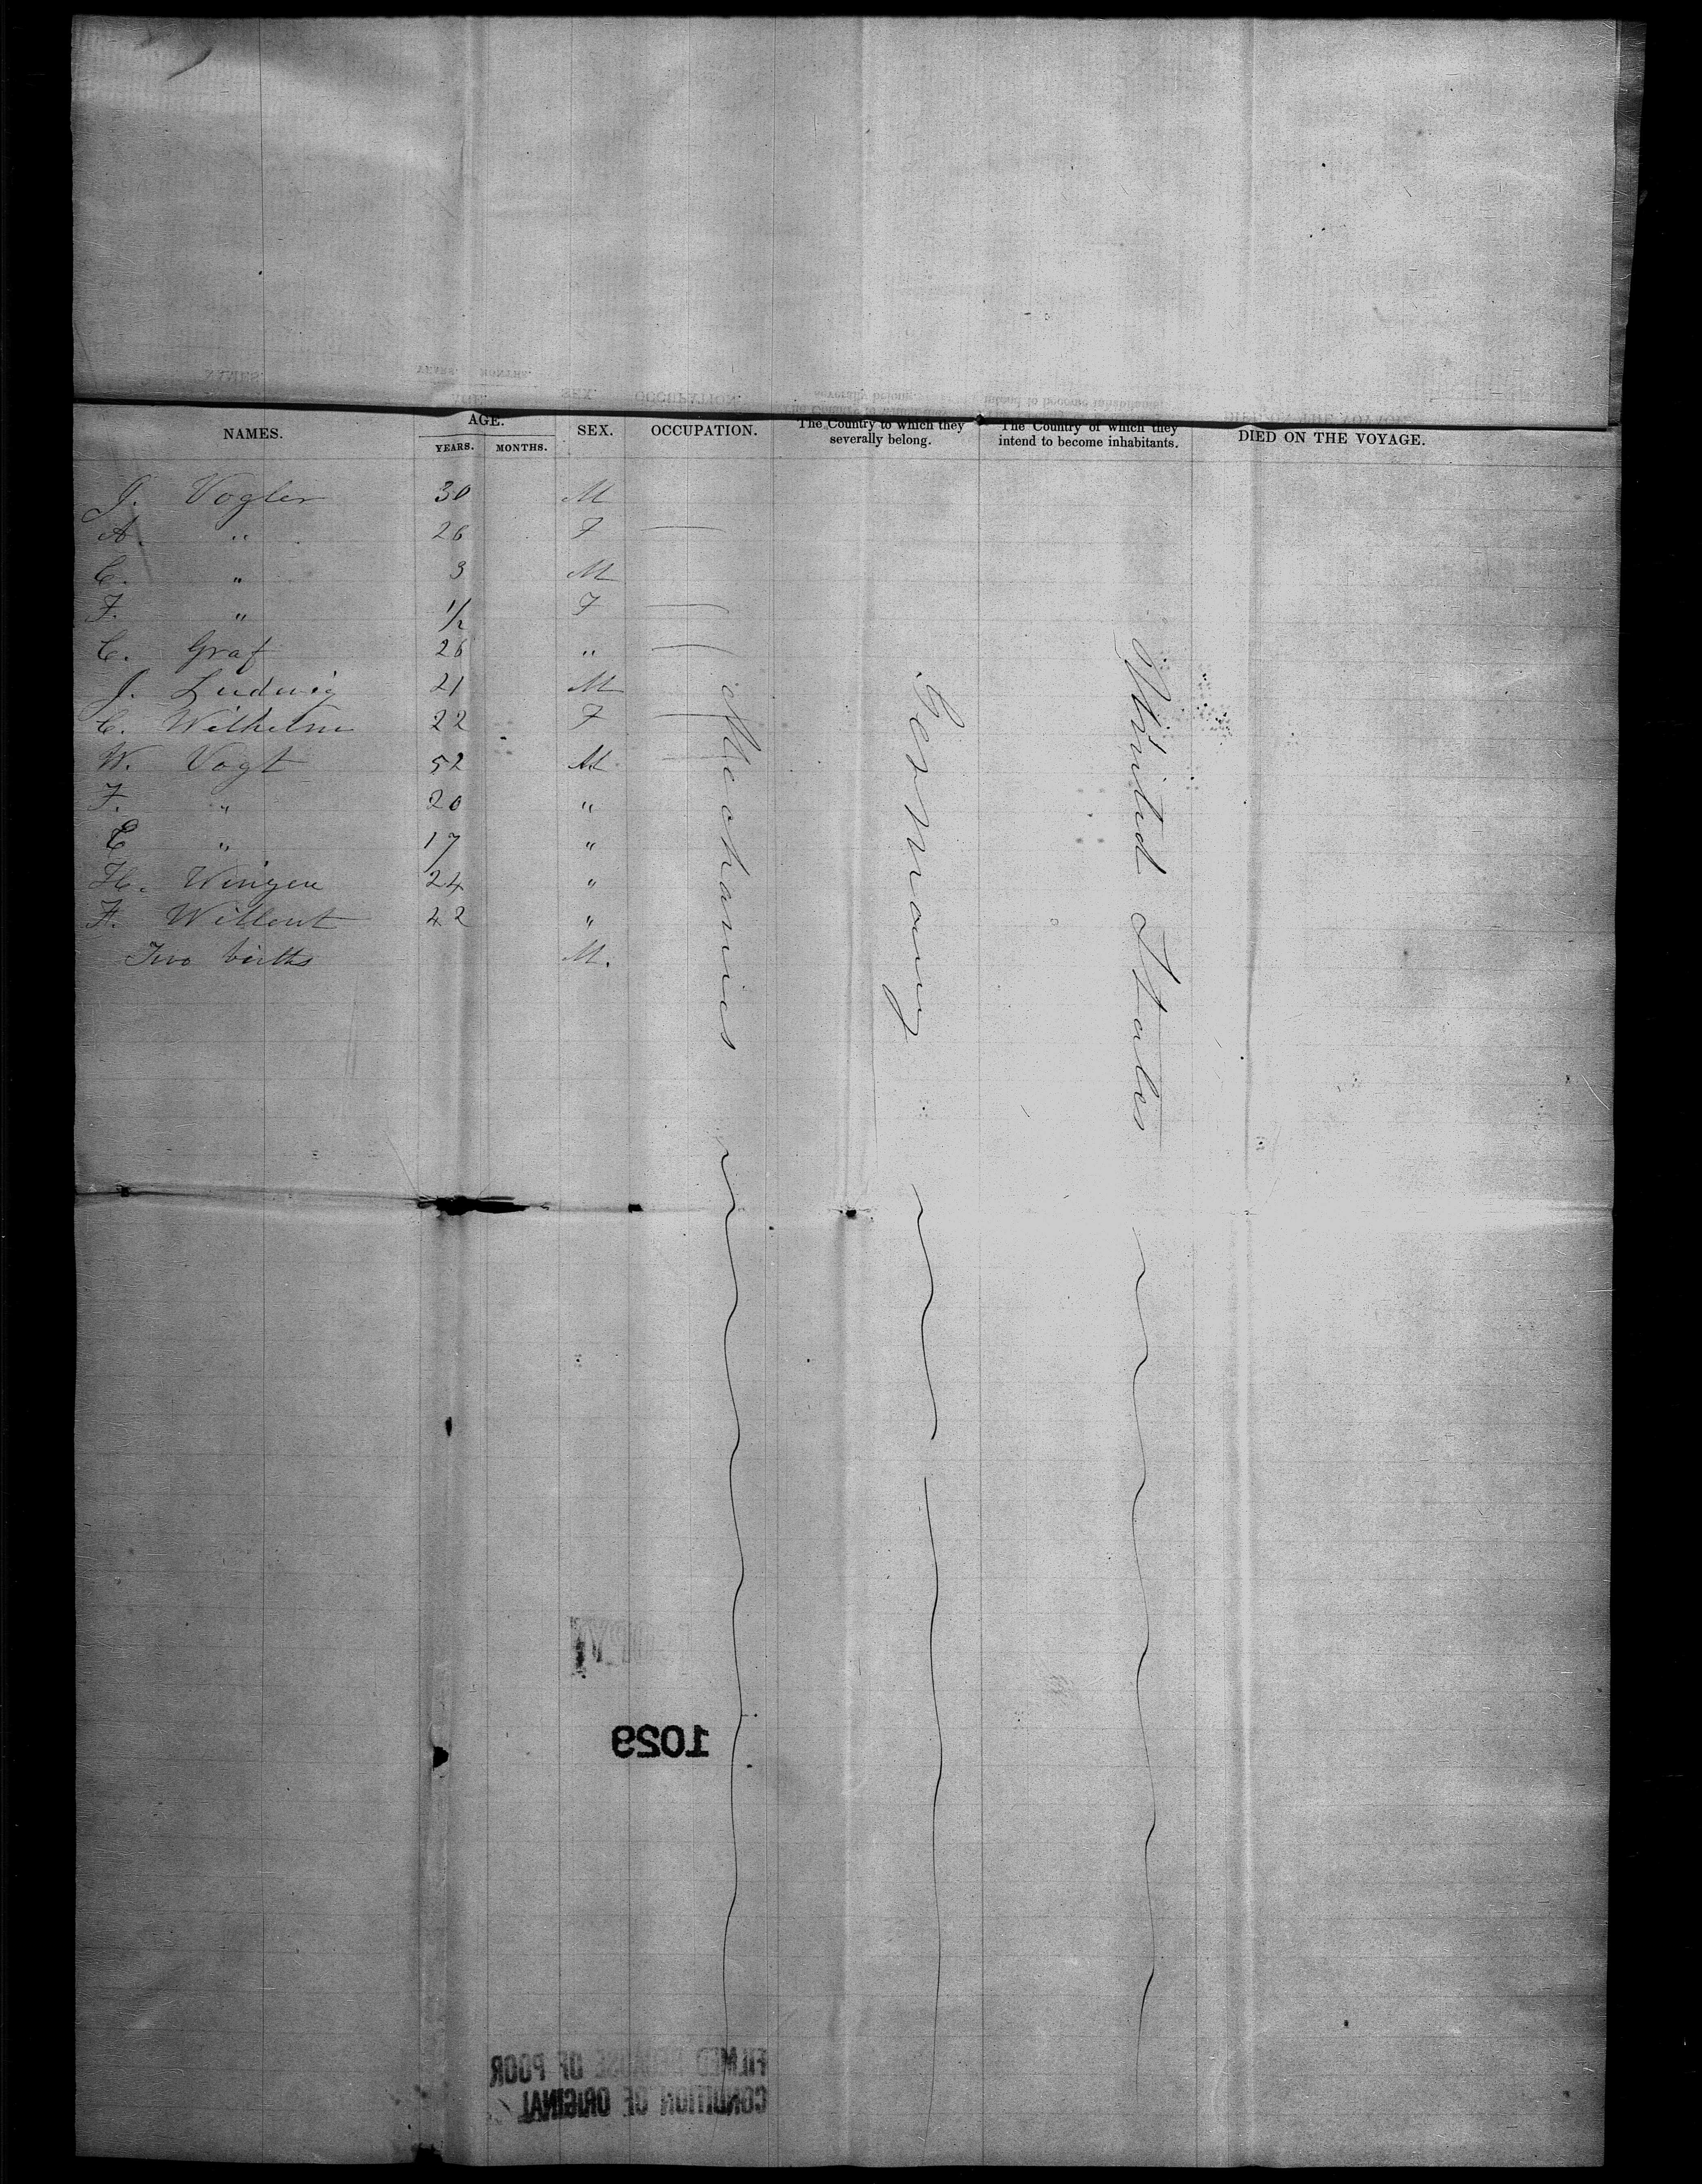 NAMES. AGE. YEARS. MONTHS. SEX. OCCUPATION. The Country to which they severally belong. The Country of which they intend to become inhabitants. DIED ON THE VOYAGE.
J. Vogler 30 M
A. " 26 F —
C. " 3 M
F. " 1/2 F —
C. Graf 26 " —
J. Ludwig 21 M
C. Wilhelm 22 F —
W. Vogt 52 M
F. " 20 "
E " 17 "
H. Wingen 24 "
F. Willout 42 "
Two births M.
Mechanics
Germany
United States
COPY
1029
FILMED BECAUSE OF POOR
CONDITION OF ORIGINAL